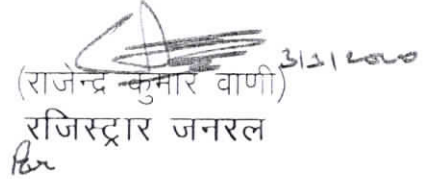 (राजेन्द्र कुमार वाणी) 3/1/2020
रजिस्ट्रार जनरल